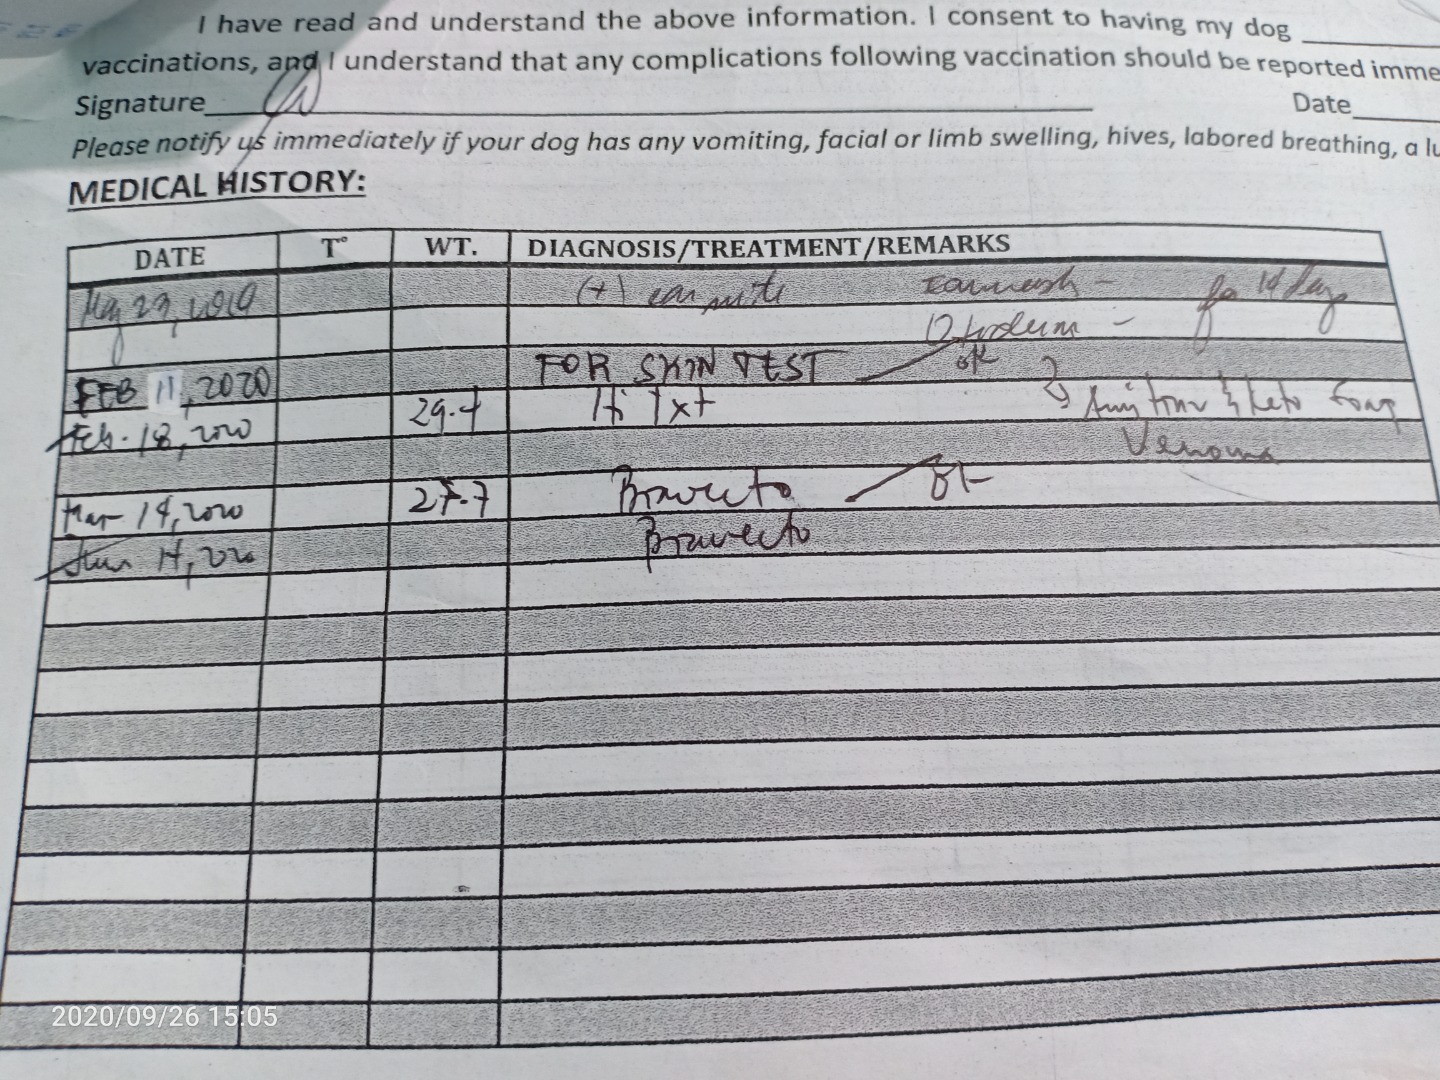 I have read and understand the above information. I consent to having my dog
vaccinations, and I understand that any complications following vaccination should be reported imme
Signature
Date
Please notify us immediately if your dog has any vomiting, facial or limb swelling, hives, labored breathing, a lu
MEDICAL HISTORY:
DATE T° WT. DIAGNOSIS/TREATMENT/REMARKS
(+) ear mite for 14 days
FEB 11, 2020 FOR SKIN TEST ok
Feb. 18, 2020
Mar 14, 2020 27.7 Bravecto ok
14, 2020 Bravecto
2020/09/26 15:05